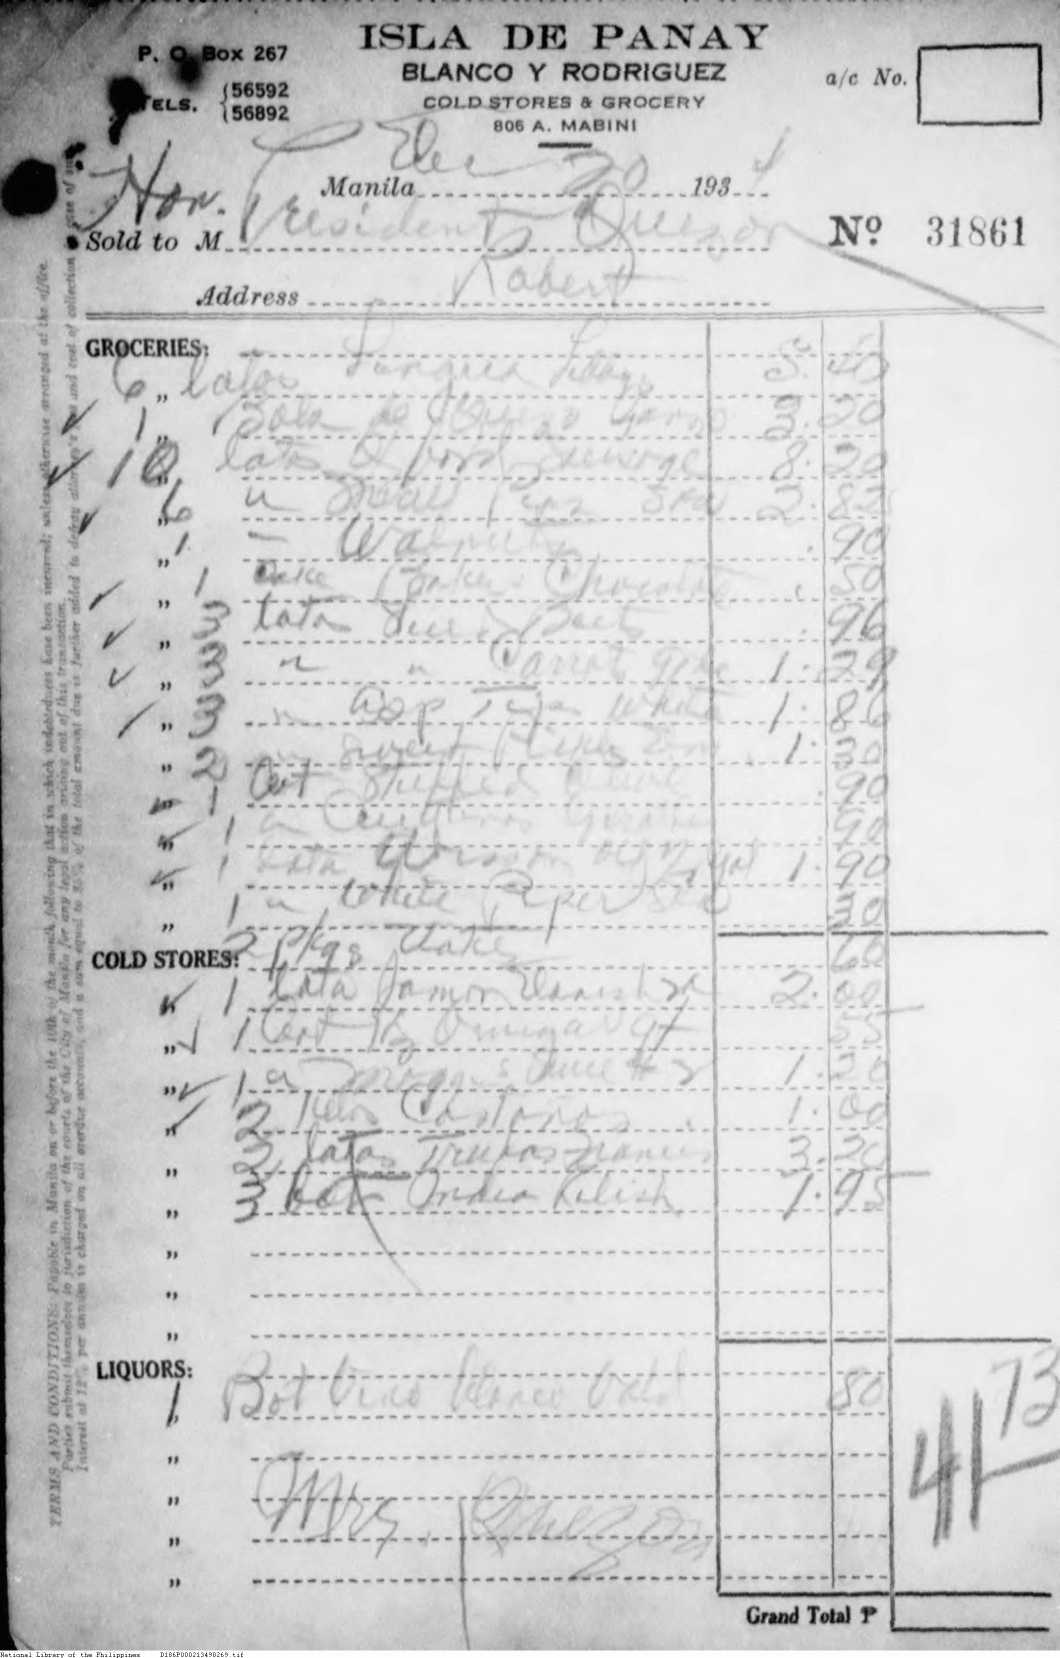 ISLA DE PANAY
P. O. Box 267
BLANCO Y RODRIGUEZ
a/c No.
TELS. 56592
56892
COLD STORES & GROCERY
806 A. MABINI
Manila Dec 20 1934
Hon. President Quezon
Sold to M
Nº 31861
Robert
Address
GROCERIES:
6 latas Lengua 5.40
1 Bola de Queso 3.20
10 latas Oxford Sausage 8.20
6 " Small Peas 2.82
1 " Walnuts .90
1 cake Bakers Chocolate .50
3 latas Beets .96
3 " " Carrot 1.29
3 " Asp Tips White 1.86
2 " Sweet 1.30
1 Bot Stuffed Olive .90
1 " .90
1 lata 1.90
1 " White Pepper .30
COLD STORES: 2 pkgs .60
1 lata Jamon Danish 2.00
1 Bot Omega .55
1 " Sauce # 2 1.20
2 Kilos Castañas 1.00
2 latas Trufas 3.20
3 bot India Relish 1.95
LIQUORS:
1 Bot Vino Blanco .80
41 73
Mrs. Quezon
Grand Total ₱
TERMS AND CONDITIONS: Payable in Manila on or before the 10th of the month following that in which indebtedness has been incurred; unless otherwise arranged at the office.
Parties submit themselves to jurisdiction of the courts of the City of Manila for any legal action arising out of this transaction.
Interest at 12% per annum is charged on all overdue accounts, and a sum equal to 25% of the total amount due is further added to defray attorney's fees and cost of collection
National Library of the Philippines D186P000213490269.tif